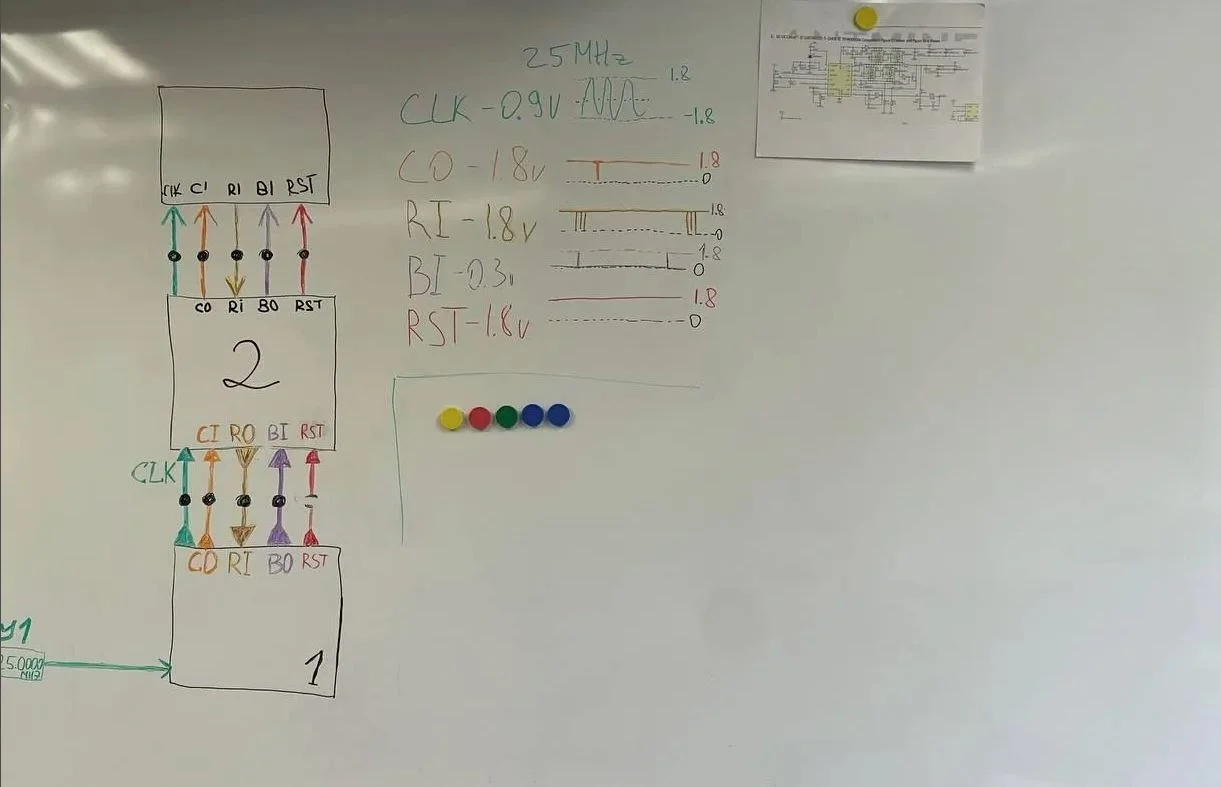 25MHz
1.8
CLK-0.9V
-1.8
CO-1.8v
1.8
0
RI-1.8v
1.8
0
BI-0.3v
1.8
0
RST-1.8v
1.8
0
CLK CI RI BI RST
CO RI BO RST
2
CI RO BI RST
CLK
CO RI BO RST
1
Y1
25.0000
MHz